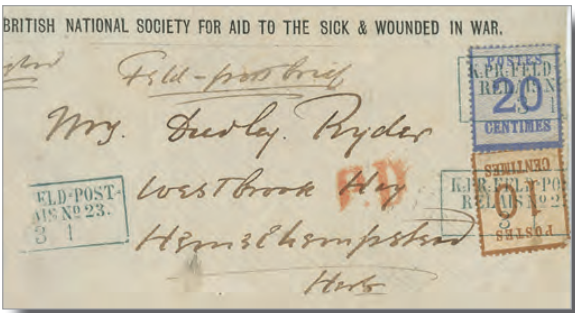 BRITISH NATIONAL SOCIETY FOR AID TO THE SICK & WOUNDED IN WAR.
Feld-post brief
Mrs. Dudley Ryder
Westbrook Hay
Hemelhempstead
Herts
P.D
ELD-POST-
AIS No 23.
3 1
POSTES
20
CENTIMES
K.PR:FELD
RELAIS N
3 1
CENTIMES
10
POSTES
K.PR:FELD-PO
RELAIS No 2
3